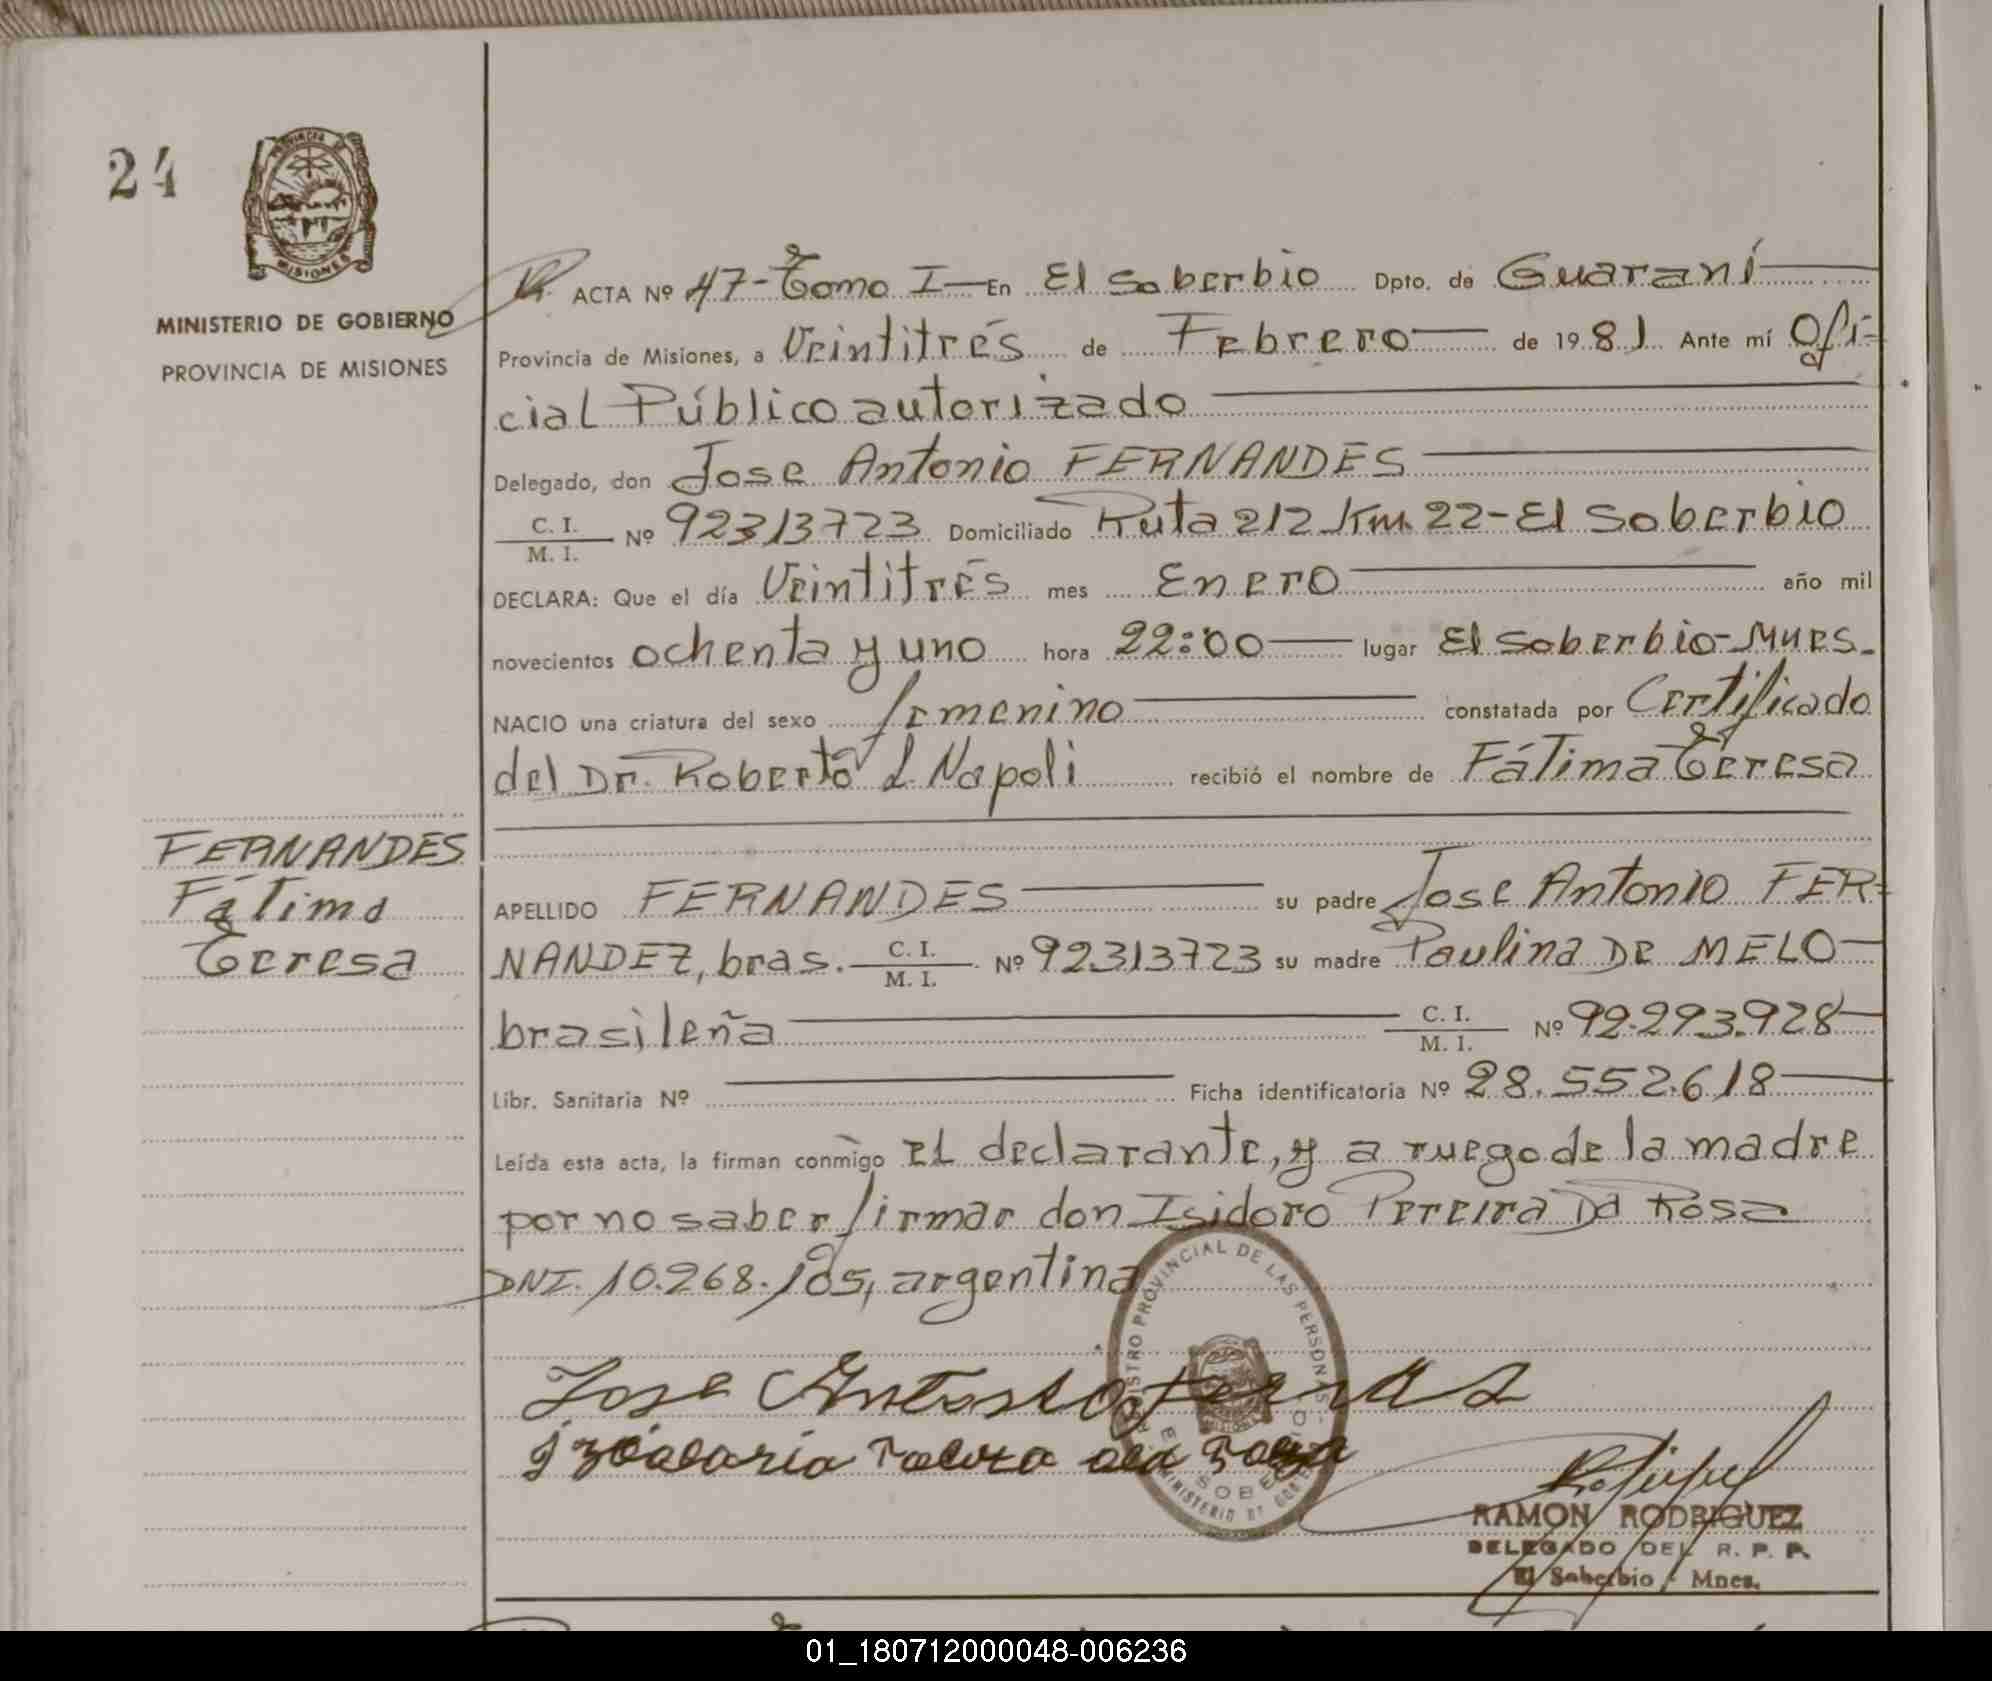 24
PROVINCIA DE
MISIONES
MINISTERIO DE GOBIERNO
PROVINCIA DE MISIONES
R. ACTA Nº 47-Tomo I— En El Soberbio Dpto. de Guaraní
Provincia de Misiones, a Veintitrés de Febrero de 1981 Ante mí Ofi=
cial Público autorizado
Delegado, don Jose Antonio FERNANDES
C. I. / M. I. Nº 92313723 Domiciliado Ruta 212 Km. 22-El Soberbio
DECLARA: Que el día Veintitrés mes Enero año mil
novecientos ochenta y uno hora 22:00 lugar El Soberbio-Mnes.
NACIO una criatura del sexo femenino constatada por Certificado
del Dr. Roberto L Napoli recibió el nombre de Fátima Teresa
FERNANDES
Fátima
Teresa
APELLIDO FERNANDES su padre Jose Antonio FER=
NANDEZ, bras. C. I. / M. I. Nº 92313723 su madre Paulina DE MELO
brasileña C. I. / M. I. Nº 92.293.928
Libr. Sanitaria Nº Ficha identificatoria Nº 28.552.618
Leída esta acta, la firman conmigo el declarante, y a ruego de la madre
por no saber firmar don Isidoro Pereira Da Rosa
DNI. 10.268.105, argentina
REGISTRO PROVINCIAL DE LAS PERSONAS
EL SOBERBIO
MINISTERIO DE GOBIERNO
Jose Antonio
RAMON RODRIGUEZ
DELEGADO DEL R. P. P.
El Soberbio - Mnes.
01_180712000048-006236